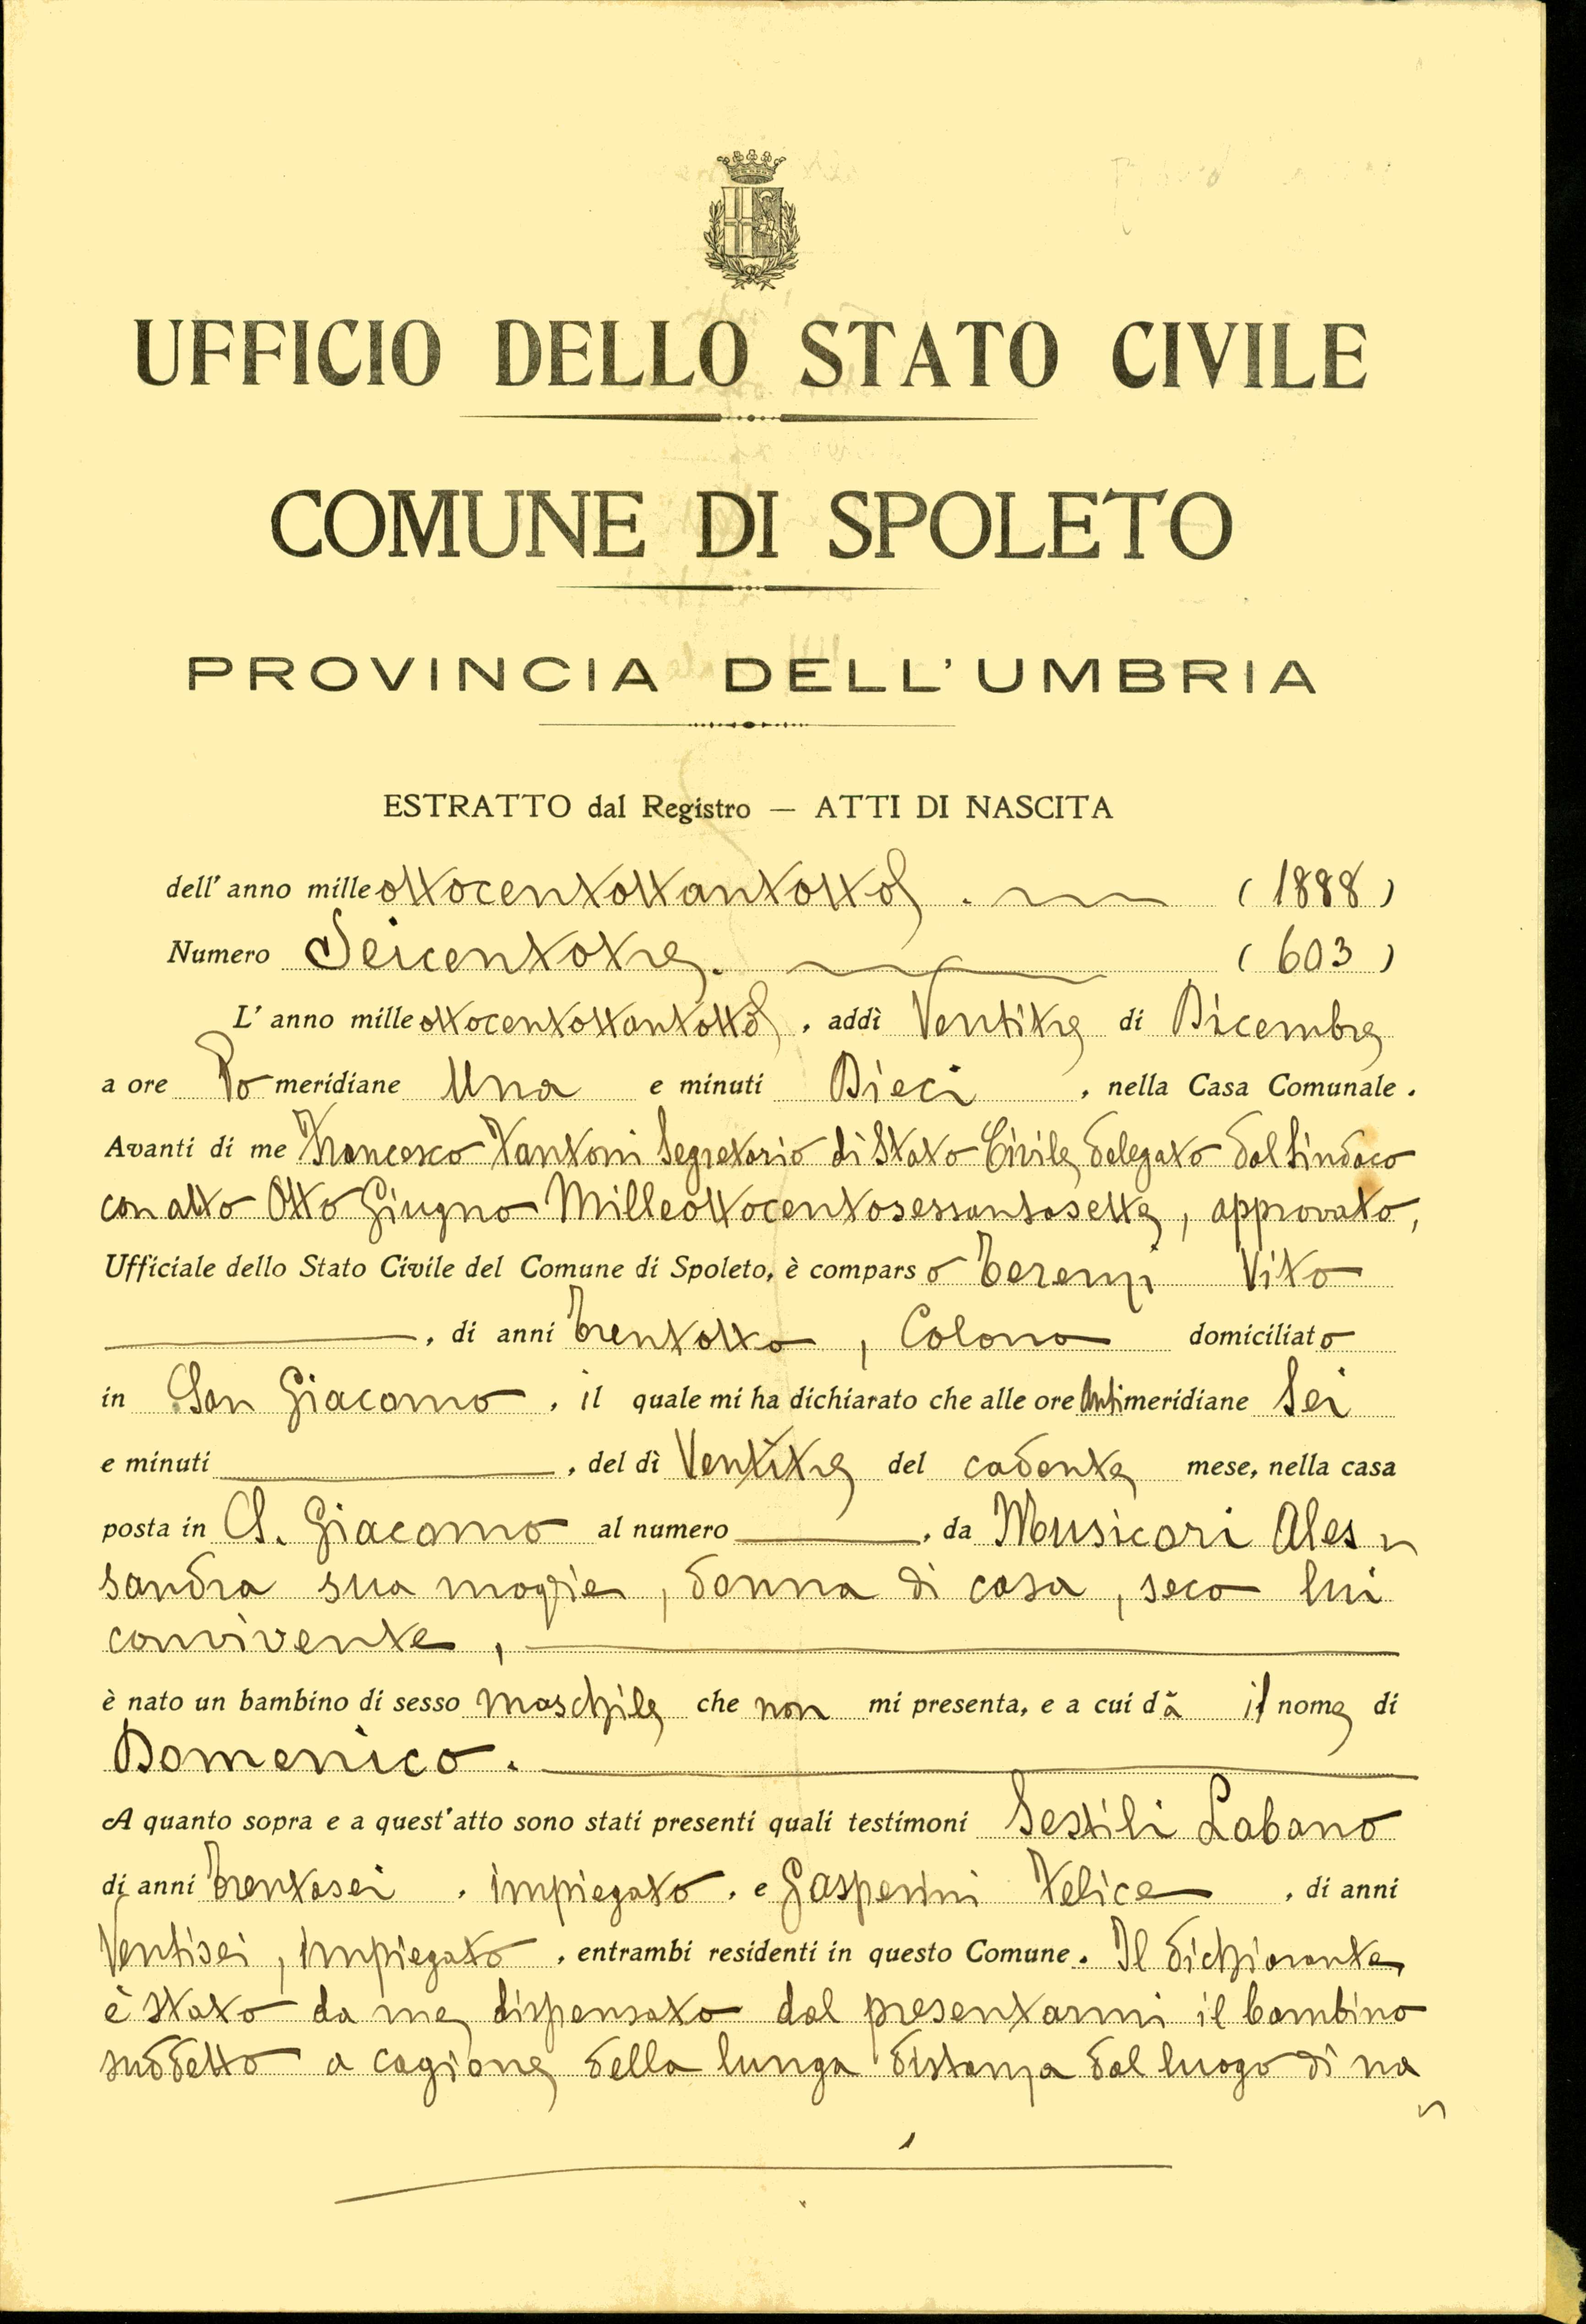 UFFICIO DELLO STATO CIVILE
COMUNE DI SPOLETO
PROVINCIA DELL'UMBRIA
ESTRATTO dal Registro — ATTI DI NASCITA
dell'anno mille ottocentottantotto. (1888)
Numero Seicentotre. (603)
L'anno mille ottocentottantotto, addì Ventitre di Dicembre
a ore Po meridiane Una e minuti Dieci, nella Casa Comunale.
Avanti di me Francesco Fantoni Segretario di Stato Civile delegato dal Sindaco
con atto Otto Giugno Milleottocentosessantasette, approvato,
Ufficiale dello Stato Civile del Comune di Spoleto, è comparso Terenzi Vito
, di anni trentotto, Colono domiciliato
in San Giacomo, il quale mi ha dichiarato che alle ore Antimeridiane Sei
e minuti , del dì Ventitre del cadente mese, nella casa
posta in S. Giacomo al numero , da Musicari Ales
sandra sua moglie, donna di casa, seco lui
convivente,
è nato un bambino di sesso maschile che non mi presenta, e a cui dà il nome di
Domenico.
A quanto sopra e a quest'atto sono stati presenti quali testimoni Sestili Labano
di anni trentasei, impiegato, e Gasperini Felice, di anni
Ventisei, impiegato, entrambi residenti in questo Comune. Il dichiarante
è stato da me dispensato dal presentarmi il bambino
suddetto a cagione della lunga distanza dal luogo di na